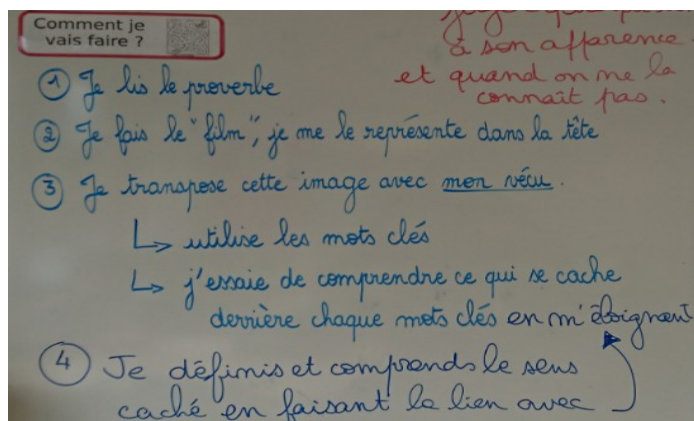 Comment je
vais faire ?
à son apparence.
et quand on ne la
connaît pas.
① Je lis le proverbe
② Je fais le "film", je me le représente dans la tête
③ Je transpose cette image avec mon vécu.
↳ utilise les mots clés
↳ j'essaie de comprendre ce qui se cache
derrière chaque mots clés en m'éloignant
④ Je définis et comprends le sens
caché en faisant le lien avec